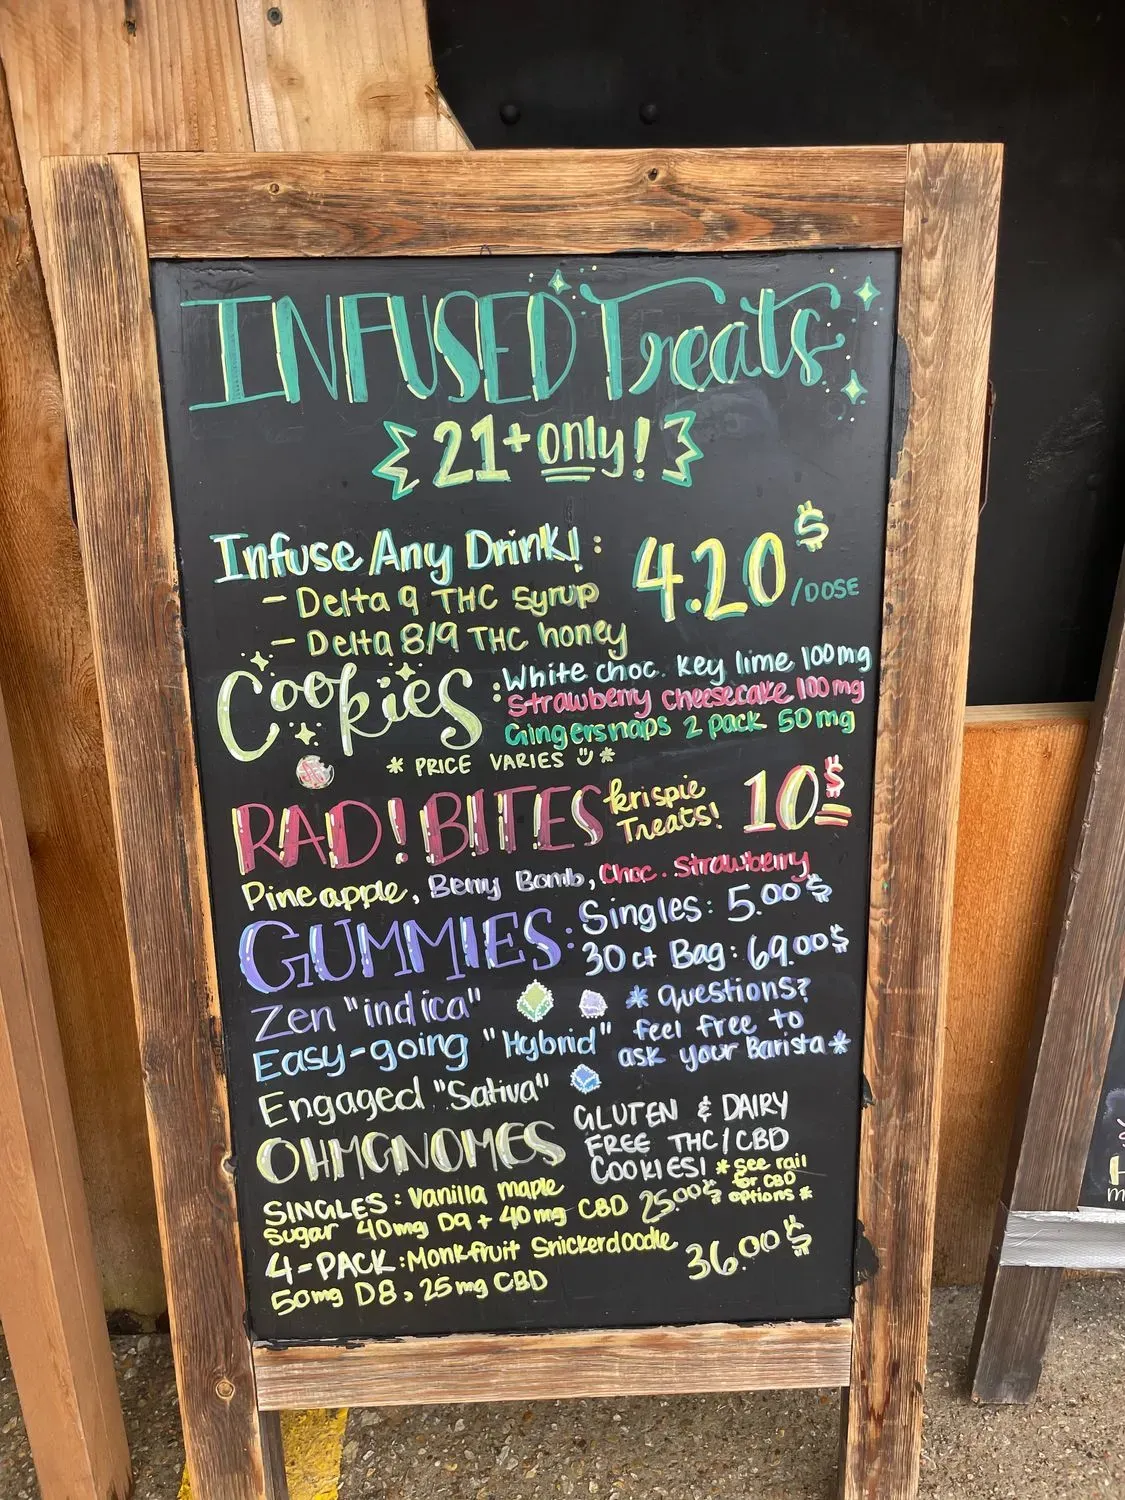 INFUSED Treats
21+ only!
Infuse Any Drink! :
4.20$
/DOSE
- Delta 9 THC syrup
- Delta 8/9 THC honey
Cookies :
White choc. Key lime 100mg
Strawberry Cheesecake 100mg
Gingersnaps 2 pack 50mg
* PRICE VARIES *
RAD! BITES
krispie
Treats!
10$
Pineapple, Berry Bomb, Choc. Strawberry
GUMMIES:
Singles: 5.00$
30 ct Bag: 69.00$
Zen "indica"
Easy-going "Hybrid"
Engaged "Sativa"
* Questions?
feel free to
ask your Barista *
OHMGNOMES
GLUTEN & DAIRY
FREE THC/CBD
COOKIES!
* see rail
for CBD
options *
SINGLES: Vanilla maple
sugar 40mg D9 + 40mg CBD 25.00$
4-PACK: Monkfruit Snickerdoodle
50mg D8, 25mg CBD
36.00$